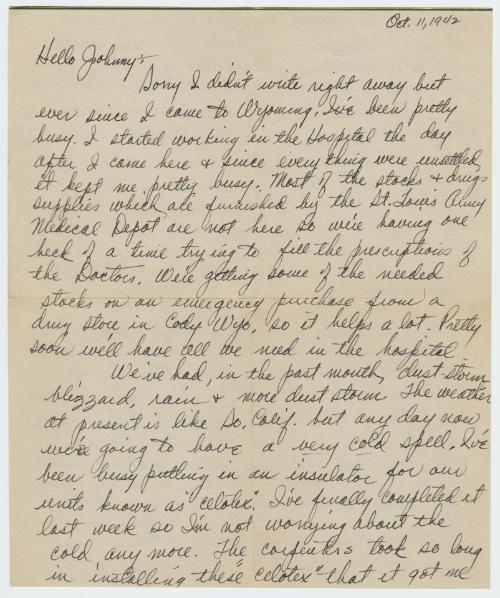 Oct. 11, 1942
Hello Johnny:
Sorry I didn't write right away but
ever since I came to Wyoming, I've been pretty
busy. I started working in the Hospital the day
after I came here & since everything were unsettled
it kept me pretty busy. Most of the stocks & drugs
supplies which are furnished by the St. Louis Army
Medical Depot are not here so we're having one
heck of a time trying to fill the prescriptions of
the Doctors. We're getting some of the needed
stocks on an emergency purchase from a
drug store in Cody Wyo, so it helps a lot. Pretty
soon we'll have all we need in the hospital
We've had, in the past month, dust storm
blizzard, rain & more dust storm. The weather
at present is like So. Calif. but any day now
we're going to have a very cold spell. I've
been busy putting in an insulator for our
units known as "celotex". I've finally completed it
last week so I'm not worrying about the
cold any more. The carpenters took so long
in installing these "celotex" that it got me